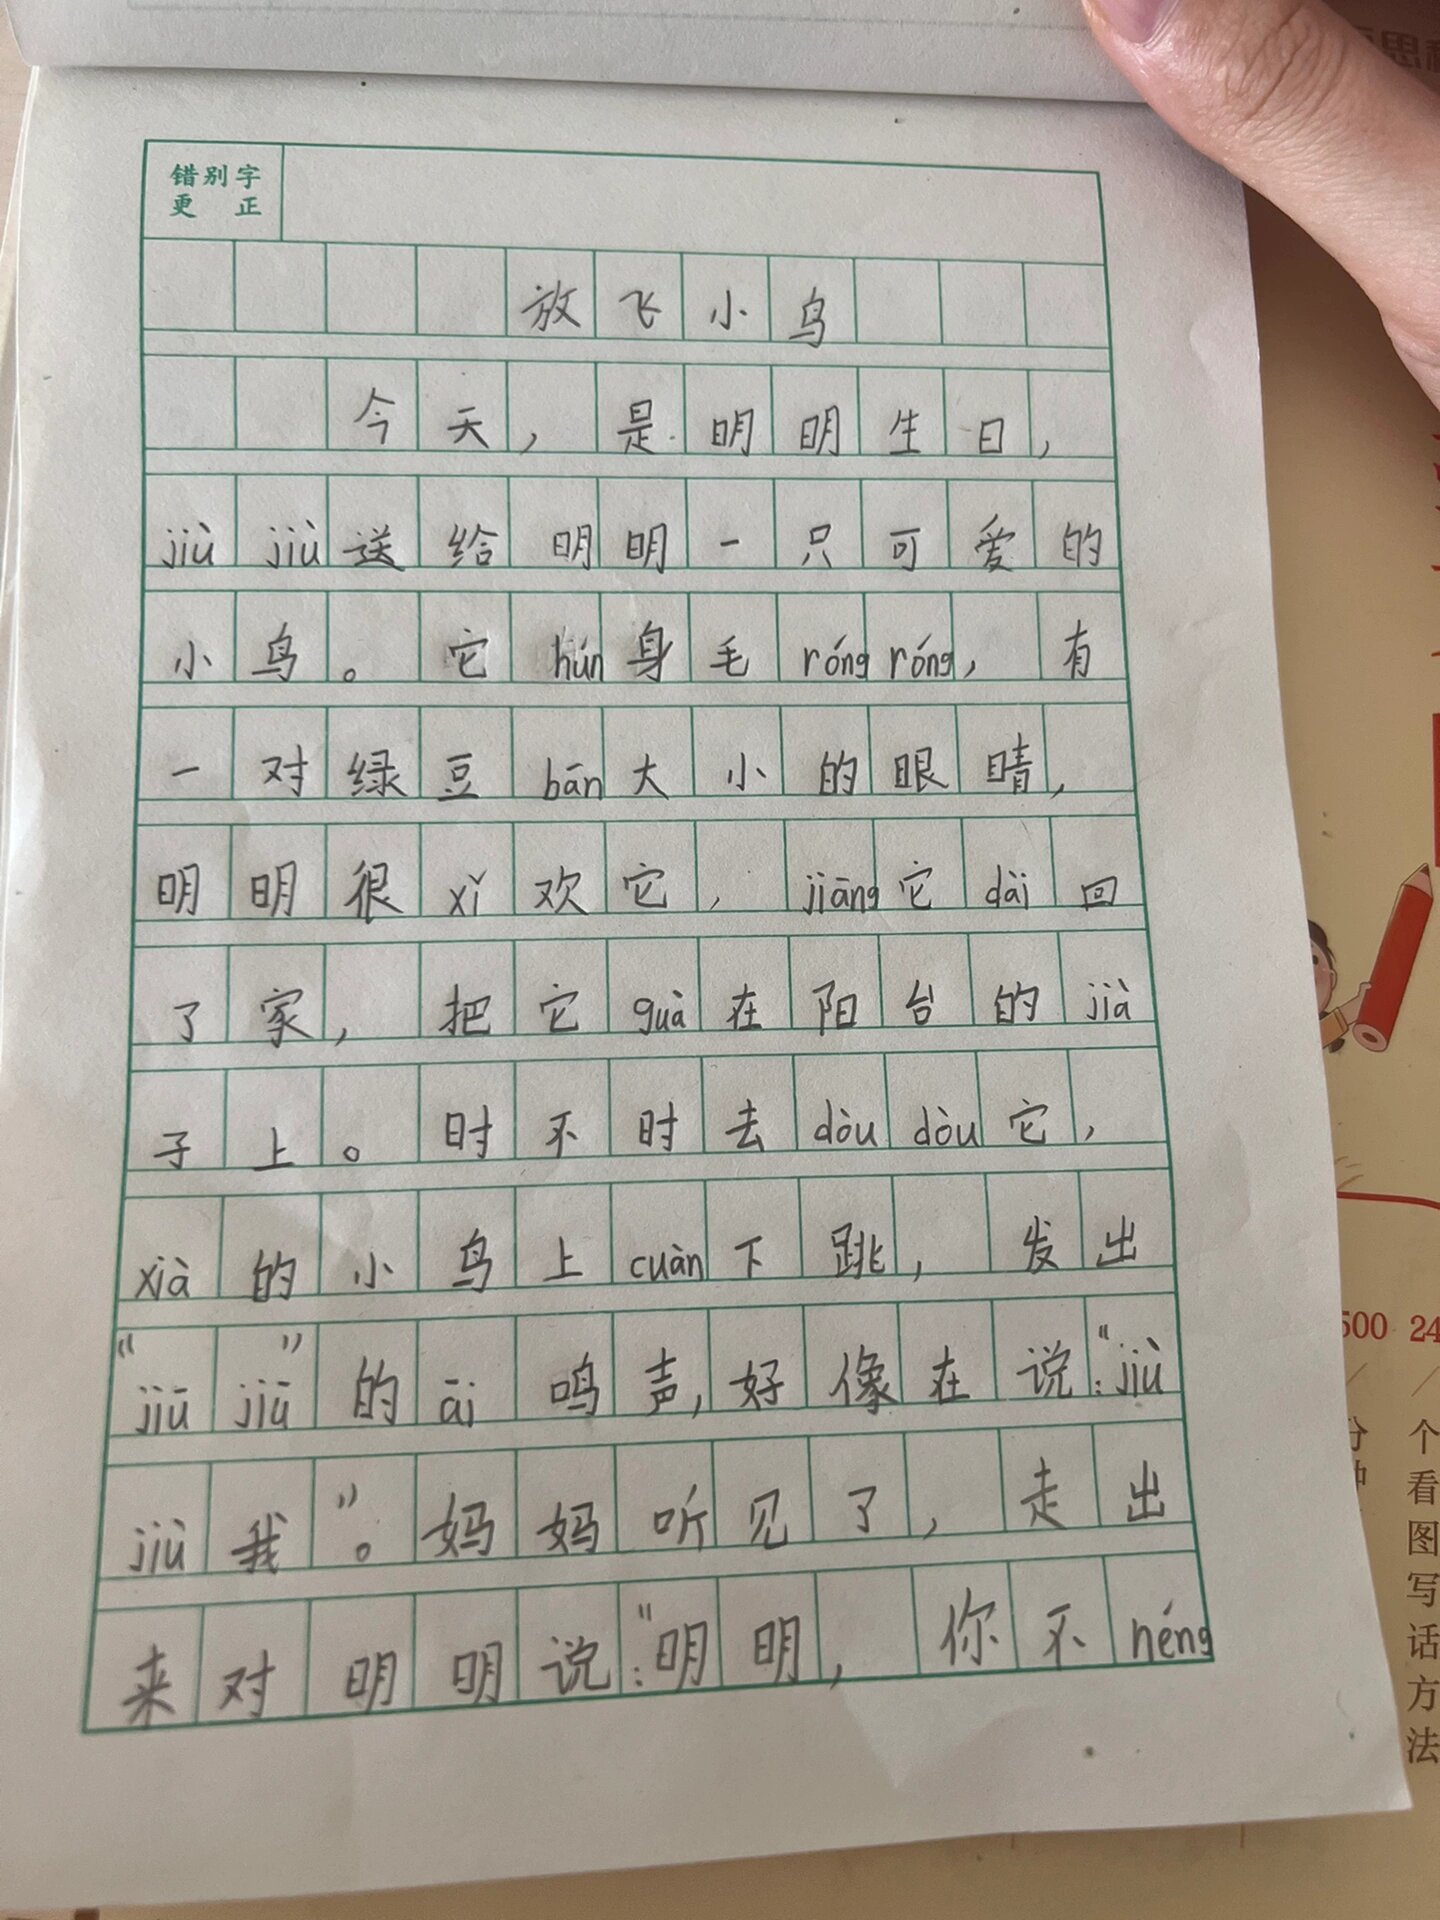 思
错别字
更正
放飞小鸟
今天，是明明生日，
jiù jiù送给明明一只可爱的
小鸟。它hún身毛róng róng，有
一对绿豆bān大小的眼睛，
明明很xǐ欢它，jiāng它dài回
了家，把它guà在阳台的jià
子上。时不时去dòu dòu它，
xià的小鸟上cuàn下跳，发出
“jiū jiū”的āi鸣声，好像在说：“jiù
jiù我”。妈妈听见了，走出
来对明明说：“明明，你不néng
500 24
个看图写话方法